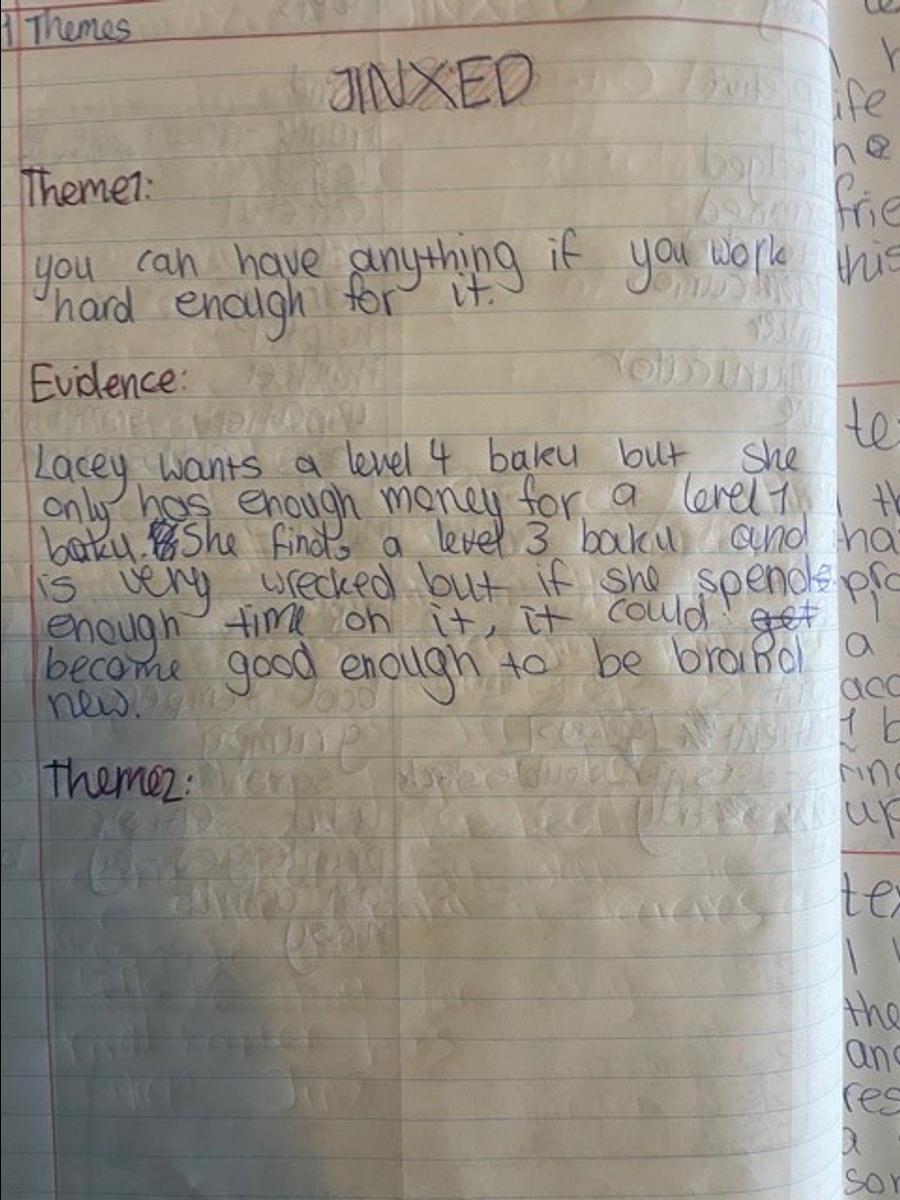 1 Themes
JINXED
Theme1:
you can have anything if you work
hard enough for it.
Evidence:
Lacey wants a level 4 baku but she
only has enough money for a level 1
baku. She finds a level 3 baku and
is very wrecked but if she spends
enough time on it, it could get
become good enough to be brand
new.
Theme2: